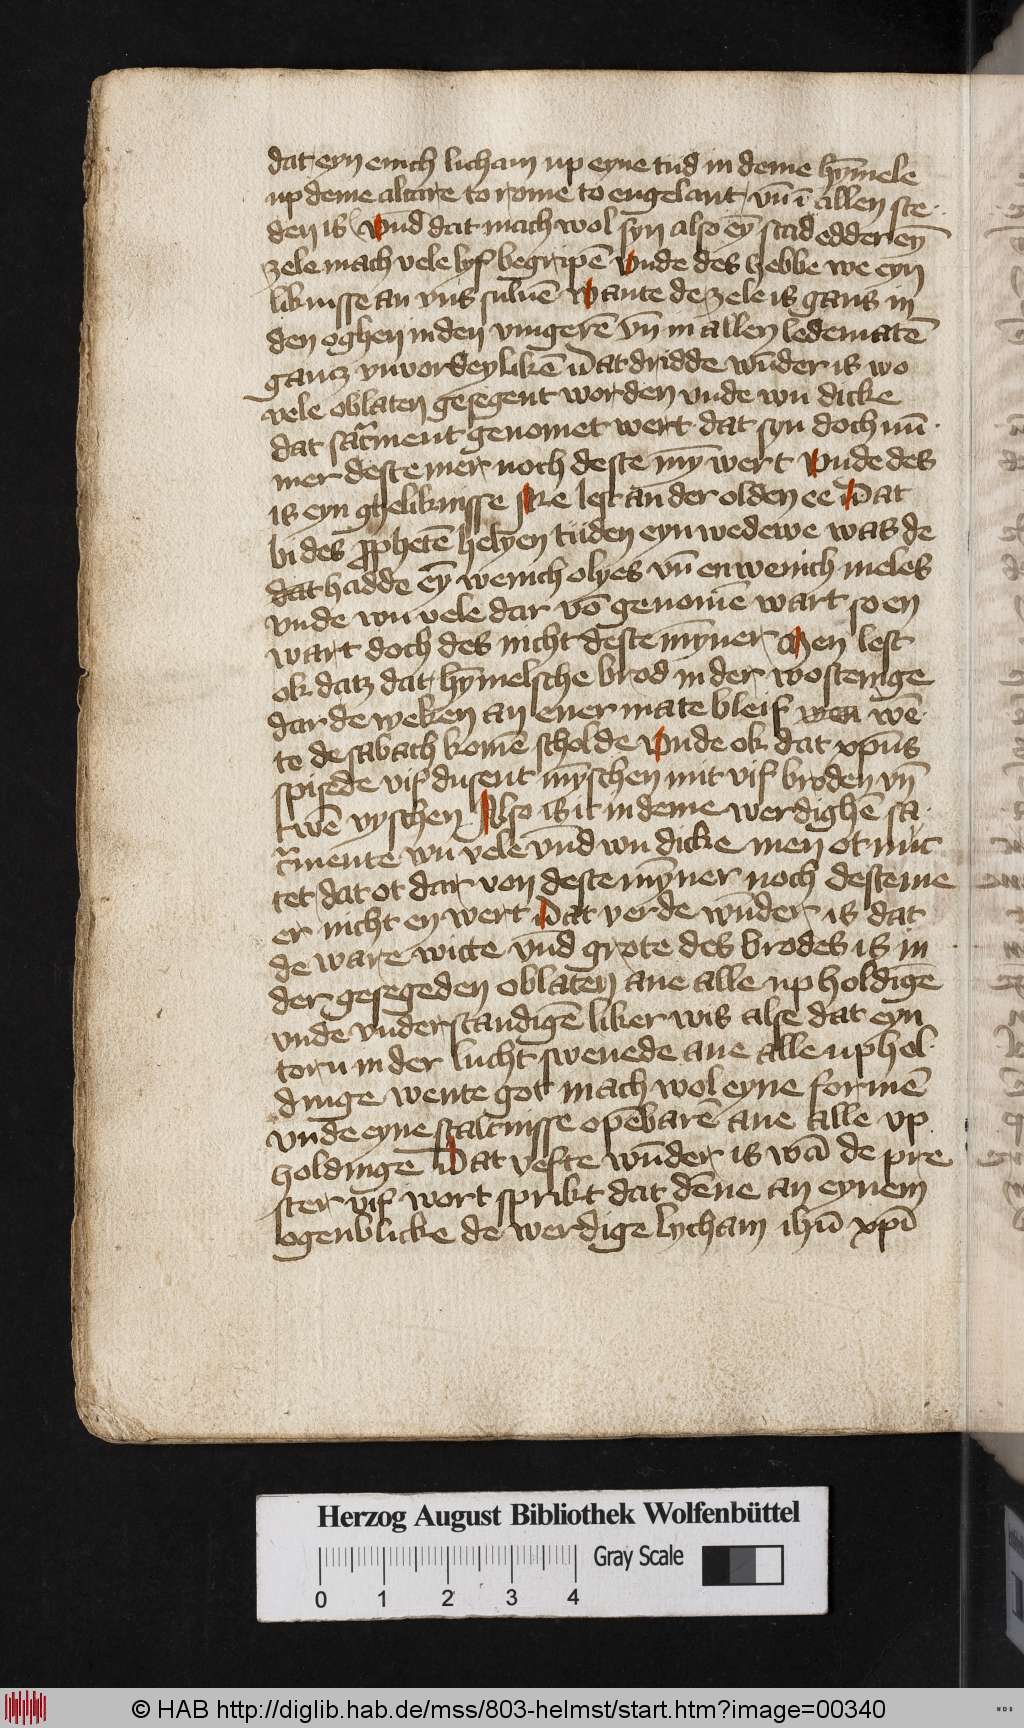 dat eyn enich licham up eyne tud in deme hȳmele
up deme altare to rome to engelant vn̄ ī allen ste
den is Vnd dat mach wol syn also eȳ stad edder eȳ
zele mach vele lyf begripē Vnde des hebbe we eyn
liknisse an vns suluē Wante de zele is gans in
den oghen in den vingerē vn̄ in allen ledematē
gantz vnvordeylikē Dat dridde wūder is wo
vele oblaten gesegent worden vnde wu dicke
dat sac͛ment genomet wert dat syn doch nū
mer deste mer noch deste mȳ wert Vnde des
is eyn gheliknisse Ik lest an der olden ee Dat
bi des ꝓphetē helyen tiiden eyn wedewe was de
dat hadde eȳ wenich olyes vn̄ en wenich meles
vnde wu vele dar vō genomē wart so en
wart doch des nicht deste mȳner Men lest
ok datz dat hȳmelsche brod in der wostenige
dar de weken an ener mate bleif wen wē
te de sabach komē scholde Vnde ok dat xp̄us
spisede vif dusent mȳschen mit vif broden vn̄
twē vyschen Also is it in deme werdighē sa
c͛mente wu vele vnd wu dicke men ot nut
tet dat ot dar von deste mȳner noch deste me
er nicht en wert Dat verde wūder is dat
de ware witte vnd grote des brodes is in
der gesegeden oblaten ane alle up holdigē
vnde vnderstandigē liker wis alse dat eyn
torn in der lucht swevede ane alle uphol
dinge wente got mach wol eyne formē
vnde eyne staltnisse opēbarē ane alle vp
holdinge Dat vefte wūder is wā de pre
ster vif wort sprikt dat dēne an eynem
ogenblicke de werdige lycham ihū xp̄i
Herzog August Bibliothek Wolfenbüttel
Gray Scale
0 1 2 3 4
© HAB http://diglib.hab.de/mss/803-helmst/start.htm?image=00340